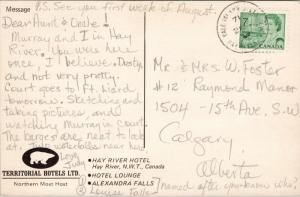 Message
P.S. See you first week of August.
Dear Aunt & Uncle!
Murray and I in Hay
River. You were here
once, I believe. Dusty
and not very pretty.
Court goes to Ft. Liard
tomorrow. Sketching and
taking pictures, and
watching Murray in Court.
The barges are neat to look
at. Two waterfalls near here
Love,
Judy
TERRITORIAL HOTELS LTD.
Northern Most Host
• HAY RIVER HOTEL
Hay River, N.W.T., Canada
• HOTEL LOUNGE
• ALEXANDRA FALLS
Louise Falls
CANADA
Mr. & Mrs W. Foster
#12 Raymond Manor
1504 - 15th Ave, S.W
Calgary,
Alberta
(named after you know who?)